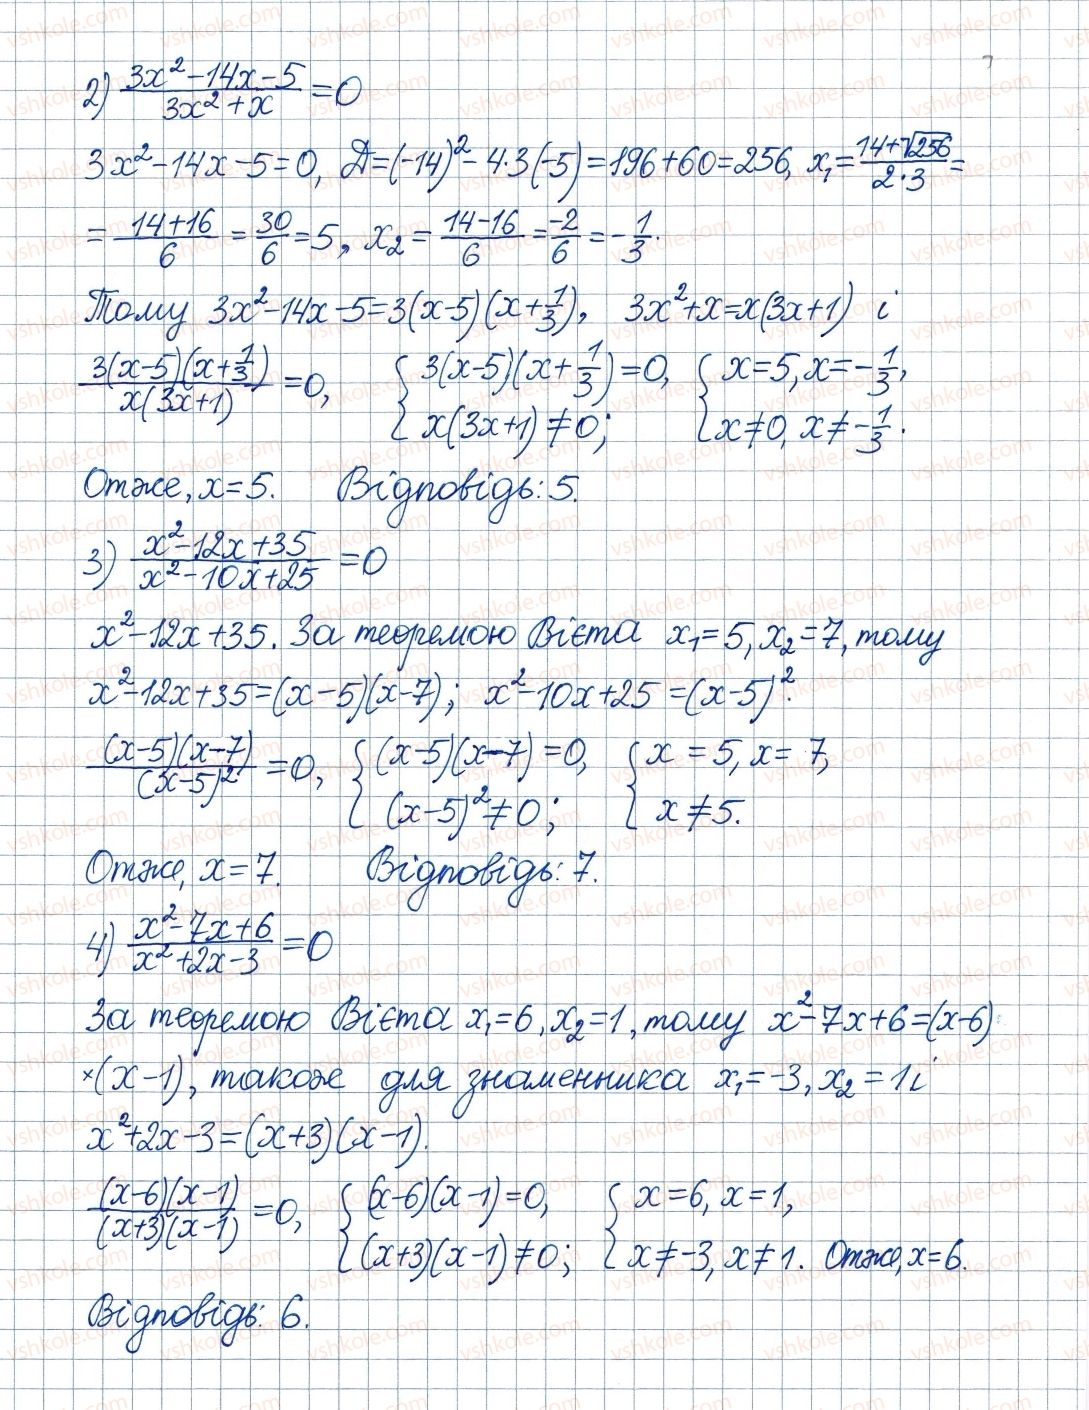 2) (3x² - 14x - 5)/(3x² + x) = 0
3x² - 14x - 5 = 0, Д = (-14)² - 4·3(-5) = 196 + 60 = 256, x₁ = (14 + √256)/(2·3) =
= (14 + 16)/6 = 30/6 = 5, x₂ = (14 - 16)/6 = -2/6 = -1/3.
Тому 3x² - 14x - 5 = 3(x - 5)(x + 1/3), 3x² + x = x(3x + 1) і
3(x - 5)(x + 1/3)/(x(3x + 1)) = 0, { 3(x - 5)(x + 1/3) = 0, x(3x + 1) ≠ 0; { x = 5, x = -1/3, x ≠ 0, x ≠ -1/3.
Отже, x = 5. Відповідь: 5.
3) (x² - 12x + 35)/(x² - 10x + 25) = 0
x² - 12x + 35. За теоремою Вієта x₁ = 5, x₂ = 7, тому
x² - 12x + 35 = (x - 5)(x - 7); x² - 10x + 25 = (x - 5)².
(x - 5)(x - 7)/(x - 5)² = 0, { (x - 5)(x - 7) = 0, (x - 5)² ≠ 0; { x = 5, x = 7, x ≠ 5.
Отже, x = 7. Відповідь: 7.
4) (x² - 7x + 6)/(x² + 2x - 3) = 0
За теоремою Вієта x₁ = 6, x₂ = 1, тому x² - 7x + 6 = (x - 6)·
×(x - 1), також для знаменника x₁ = -3, x₂ = 1 і
x² + 2x - 3 = (x + 3)(x - 1).
(x - 6)(x - 1)/((x + 3)(x - 1)) = 0, { (x - 6)(x - 1) = 0, (x + 3)(x - 1) ≠ 0; { x = 6, x = 1, x ≠ -3, x ≠ 1. Отже, x = 6.
Відповідь: 6.
vshkole.com